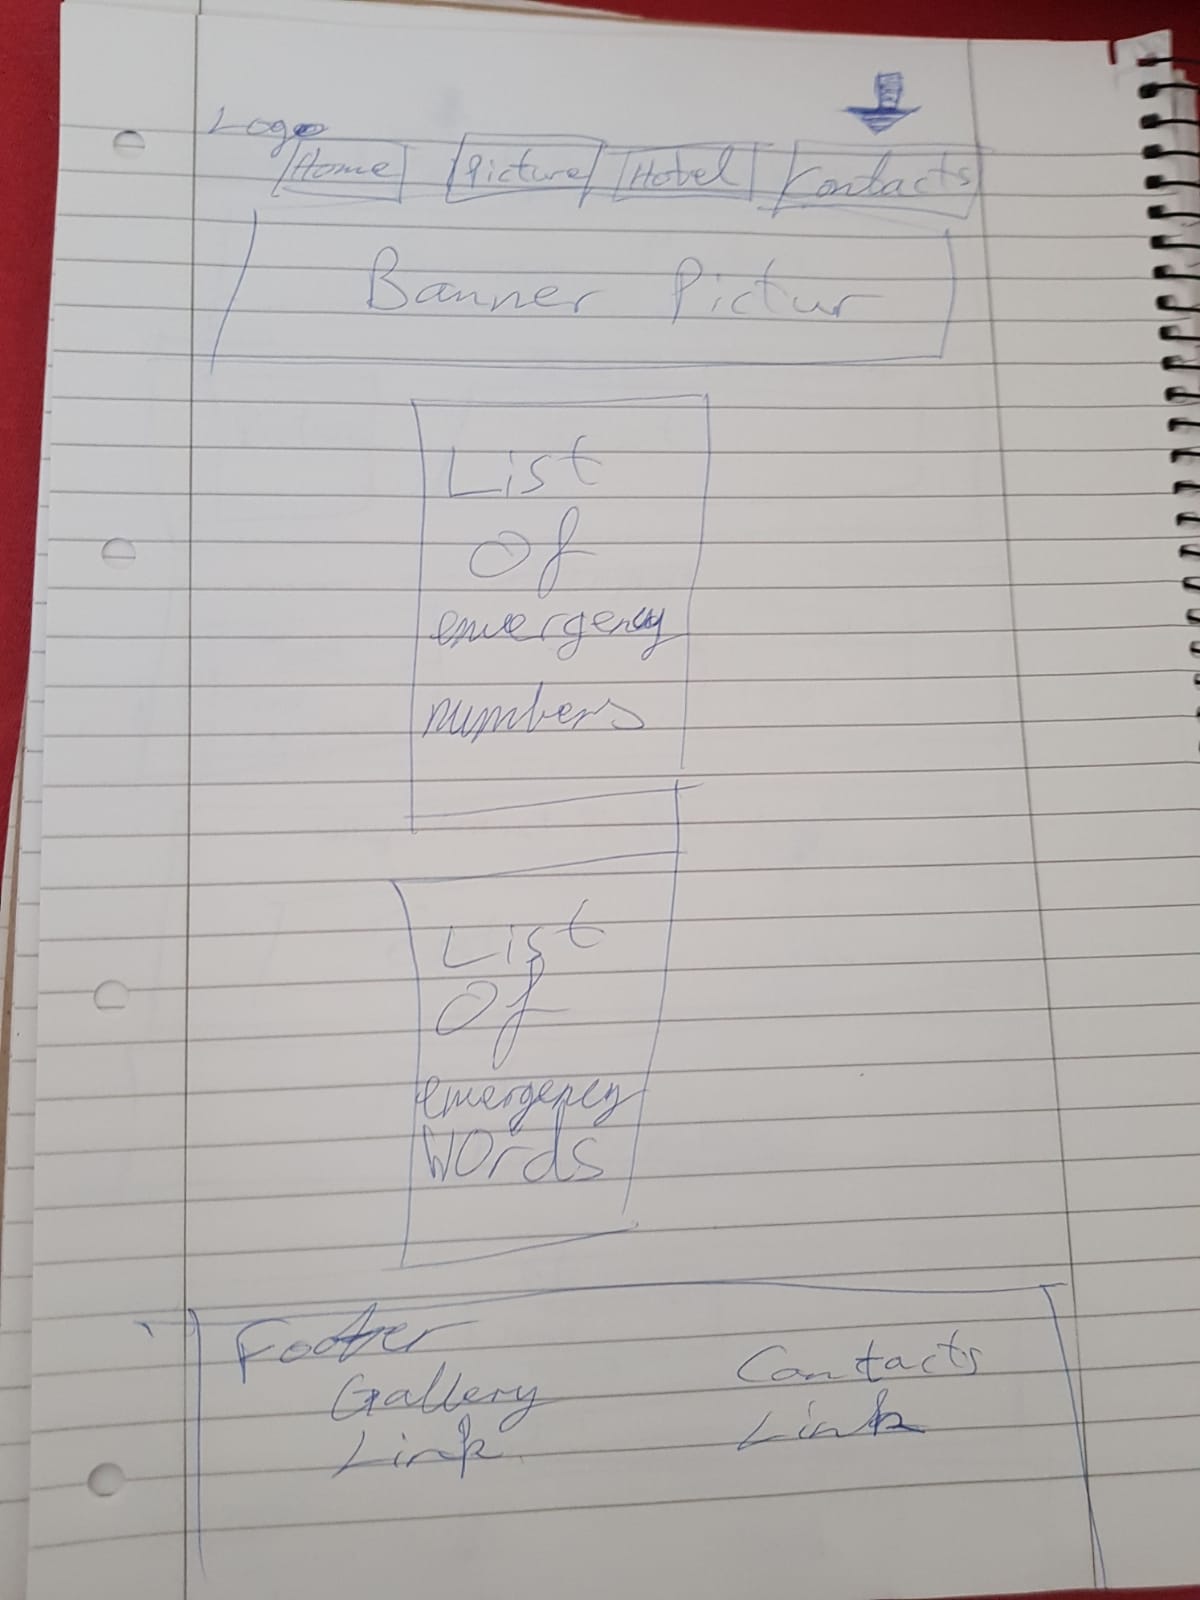 Logo
Home Picture Hotel Contacts
Banner Pictur
List
Of
emergency
numbers
List
Of
emergency
Words
Footer
Gallery Contacts
Link Link